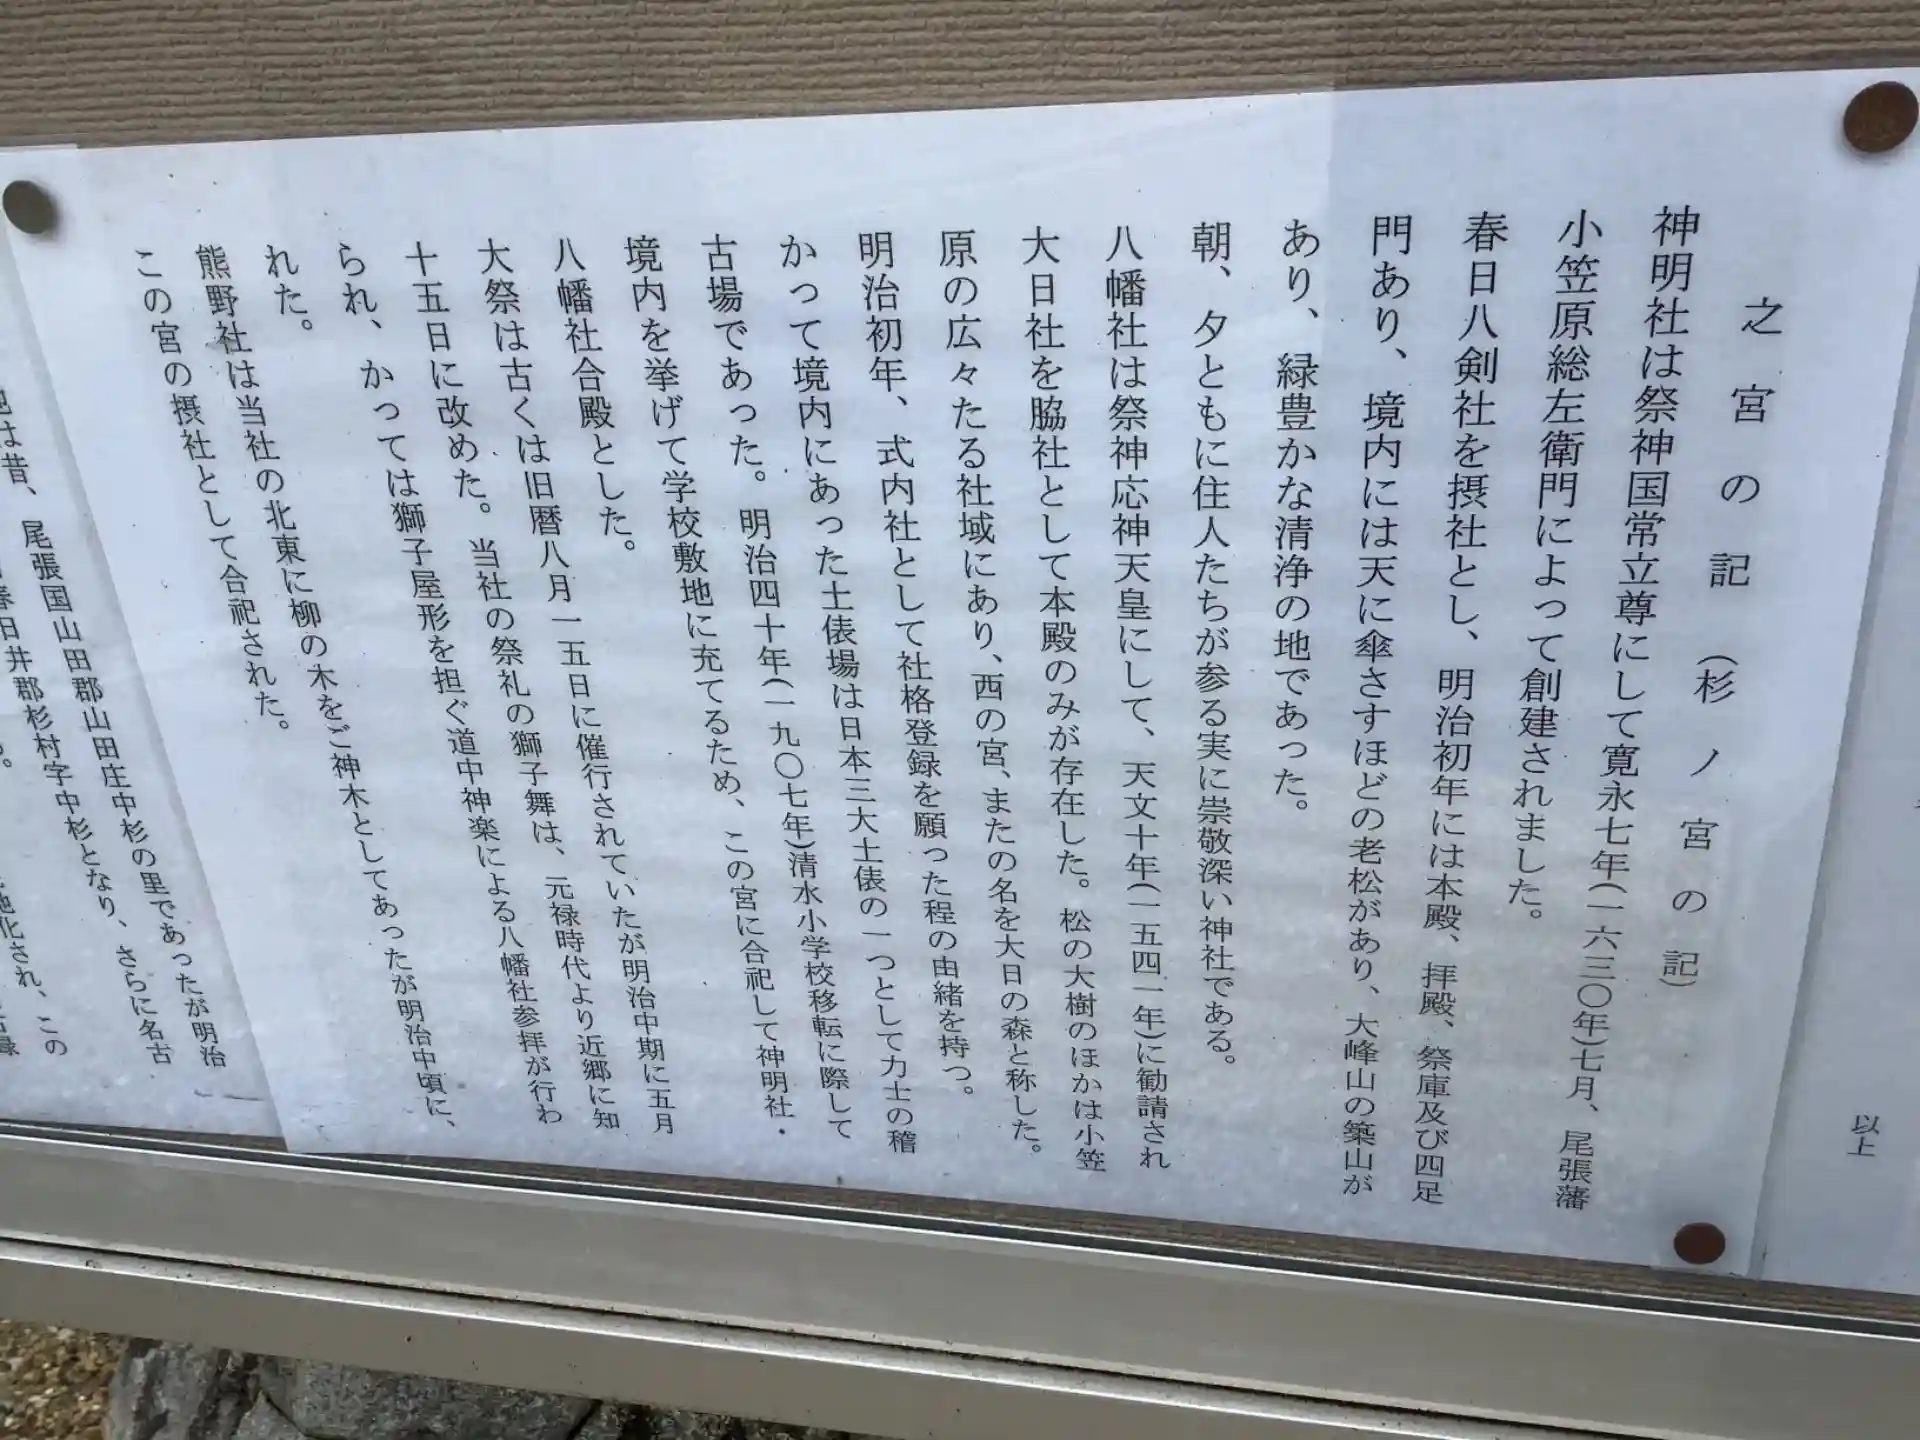 以上
之宮の記（杉ノ宮の記）
神明社は祭神国常立尊にして寛永七年(一六三〇年)七月、尾張藩
小笠原総左衛門によって創建されました。
春日八剣社を摂社とし、明治初年には本殿、拝殿、祭庫及び四足
門あり、境内には天に傘さすほどの老松があり、大峰山の築山が
あり、緑豊かな清浄の地であった。
朝、夕ともに住人たちが参る実に崇敬深い神社である。
八幡社は祭神応神天皇にして、天文十年(一五四一年)に勧請され
大日社を脇社として本殿のみが存在した。松の大樹のほかは小笠
原の広々たる社域にあり、西の宮、またの名を大日の森と称した。
明治初年、式内社として社格登録を願った程の由緒を持つ。
かって境内にあった土俵場は日本三大土俵の一つとして力士の稽
古場であった。明治四十年(一九〇七年)清水小学校移転に際して
境内を挙げて学校敷地に充てるため、この宮に合祀して神明社・
八幡社合殿とした。
大祭は古くは旧暦八月一五日に催行されていたが明治中期に五月
十五日に改めた。当社の祭礼の獅子舞は、元禄時代より近郷に知
られ、かっては獅子屋形を担ぐ道中神楽による八幡社参拝が行わ
れた。
熊野社は当社の北東に柳の木をご神木としてあったが明治中頃に、
この宮の摂社として合祀された。
地は昔、尾張国山田郡山田庄中杉の里であったが明治
春日井郡杉村字中杉となり、さらに名古
る。
地化され、この